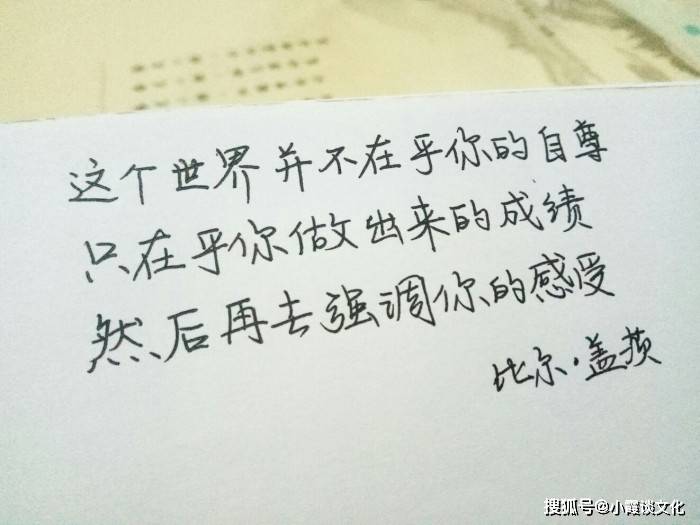 这个世界并不在乎你的自尊
只在乎你做出来的成绩
然后再去强调你的感受
比尔·盖茨
搜狐号@小霞谈文化